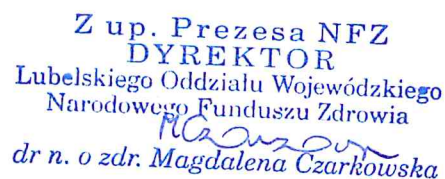 Z up. Prezesa NFZ
DYREKTOR
Lubelskiego Oddziału Wojewódzkiego
Narodowego Funduszu Zdrowia
dr n. o zdr. Magdalena Czarkowska